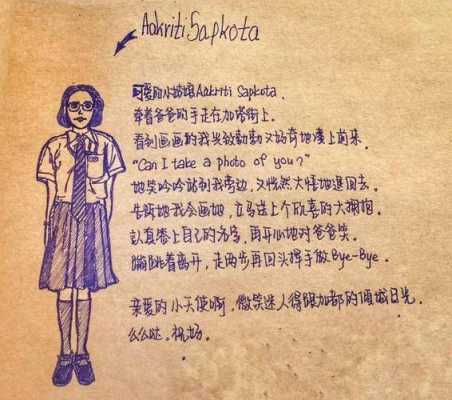 Aakriti Sapkota
可爱的小姑娘Aakriti Sapkota.
牵着爸爸的手走在加德街上.
看到画画的我
又好奇地凑上前来.
"Can I take a photo of you?"
她笑吟吟站到我旁边,又恍然大悟地退回去.
告诉她我会画她,立马送上个欣喜的大拥抱.
认真签上自己的名字,再开心地对爸爸笑.
蹦跳着离开,走两步再回头挥手做Bye-Bye.
亲爱的小天使啊,微笑迷人得跟加都的倾城日光.
么么哒.祝好.